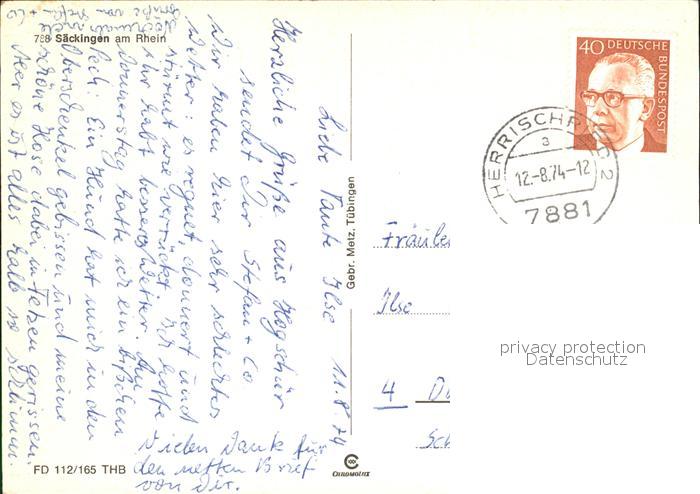 Liebe Tante Ilse 11.8.74
Herzliche Grüße aus Hogschür
sendet dir Stefan + Co
Wir haben hier sehr schlechtes
Wetter: es regnet, donnert und
stürmt wie verrückt. Ich hoffe
Ihr habt besseres Wetter. Am
Donnerstag hatte ich ein bißchen
Pech: Ein Hund hat mich in den
Oberschenkel gebissen und meine
schöne Hose dabei in Fetzen gerissen.
Aber es ist alles halb so schlimm
Nochmals viele
Grüße von Stefan
+ Co
Vielen Dank für
den netten Brief
von Dir.
788 Säckingen am Rhein
FD 112/165 THB
Gebr. Metz, Tübingen
CHROMOLUX
40 DEUTSCHE BUNDESPOST
HERRISCHRIED 2
a
12.-8.74-12
7881
Fräulei
Ilse
4 Du
Sch
privacy protection
Datenschutz